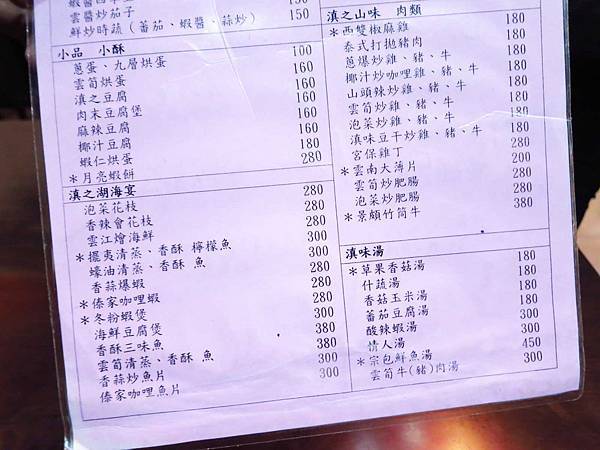 雲醬炒茄子 150
鮮炒時蔬(蕃茄、蝦醬、蒜炒) 150
小品 小酥
蔥蛋、九層烘蛋 100
雲筍烘蛋 160
滇之豆腐 160
肉末豆腐煲 160
麻辣豆腐 160
椰汁豆腐 160
蝦仁烘蛋 180
*月亮蝦餅 280
滇之湖海宴
泡菜花枝 280
香辣會花枝 280
雲江燴海鮮 280
*擺夷清蒸、香酥 檸檬魚 300
蠔油清蒸、香酥 魚 300
香蒜爆蝦 280
*傣家咖哩蝦 280
*冬粉蝦煲 280
海鮮豆腐煲 300
香酥三味魚 380
雲筍清蒸、香酥 魚 380
香蒜炒魚片 300
傣家咖哩魚片 300
滇之山味 肉類
*西雙椒麻雞 180
泰式打拋豬肉 180
蔥爆炒雞、豬、牛 180
椰汁炒咖哩雞、豬、牛 180
山頭辣炒雞、豬、牛 180
雲筍炒雞、豬、牛 180
泡菜炒雞、豬、牛 180
滇味豆干炒雞、豬、牛 180
宮保雞丁 280
*雲南大薄片 200
雲筍炒肥腸 280
泡菜炒肥腸 280
*景頗竹筒牛 380
滇味湯
*草果香菇湯 180
什蔬湯 180
香菇玉米湯 180
蕃茄豆腐湯 180
酸辣蝦湯 300
情人湯 300
*宗包鮮魚湯 450
雲筍牛(豬)肉湯 300